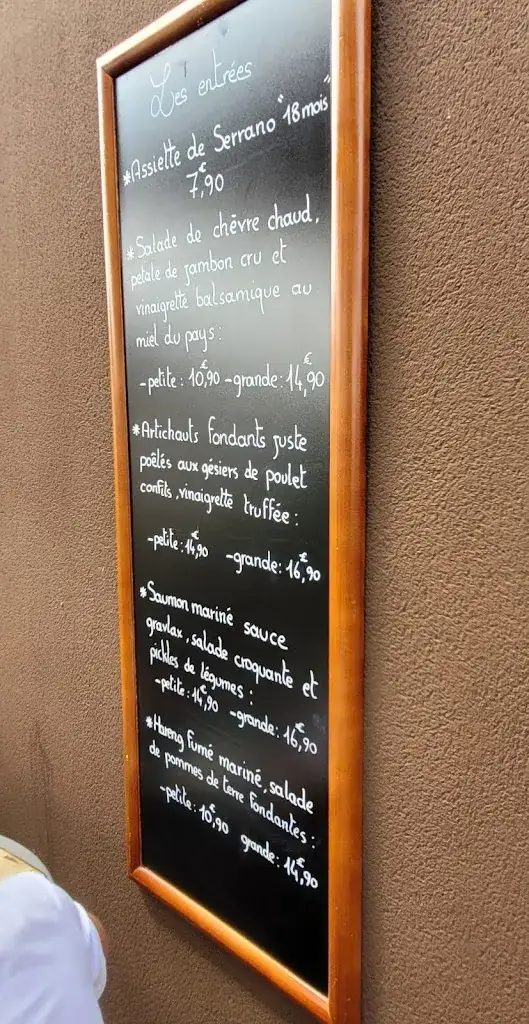 Les entrées
*Assiette de Serrano "18 mois"
7,€90
*Salade de chèvre chaud,
petale de jambon cru et
vinaigrette balsamique au
miel du pays:
-petite: 10,€90 -grande: 14,€90
*Artichauts fondants juste
poêlés aux gésiers de poulet
confits, vinaigrette truffée:
-petite: 14,€90 -grande: 16,€90
*Saumon mariné sauce
gravlax, salade croquante et
pickles de légumes:
-petite: 14,€90 -grande: 16,€90
*Hareng fumé mariné, salade
de pommes de terre fondantes:
-petite: 10,€90 grande: 14,€90